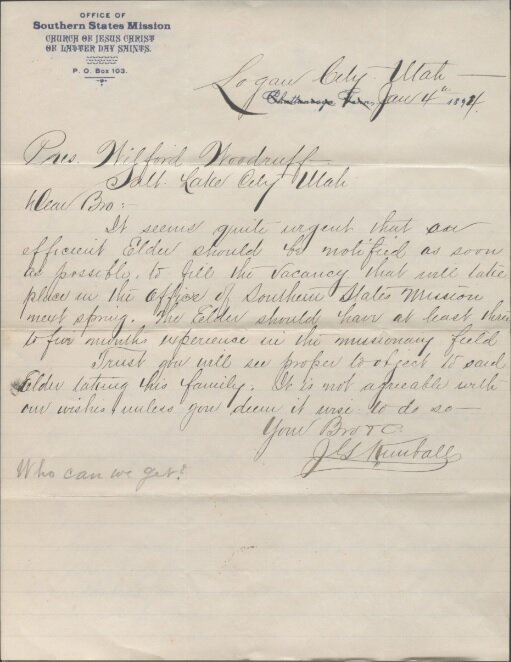 OFFICE OF
Southern States Mission
CHURCH OF JESUS CHRIST
OF LATTER DAY SAINTS.
P. O. Box 103.
Logan City Utah
Chattanooga Tenn. Jan 4th 1894
Pres. Wilford Woodruff
Salt Lake City Utah
Dear Bro:-
It seems quite urgent that an
efficient Elder should be notified as soon
as possible, to fill the vacancy that will take
place in the office of Southern States Mission
next spring. The Elder should have at least three
to five months experience in the missionary field
Trust you will see proper to object to said
Elder taking his family. It is not agreeable with
our wishes unless you deem it wise to do so—
Your Bro &C.
J G Kimball
Who can we get?